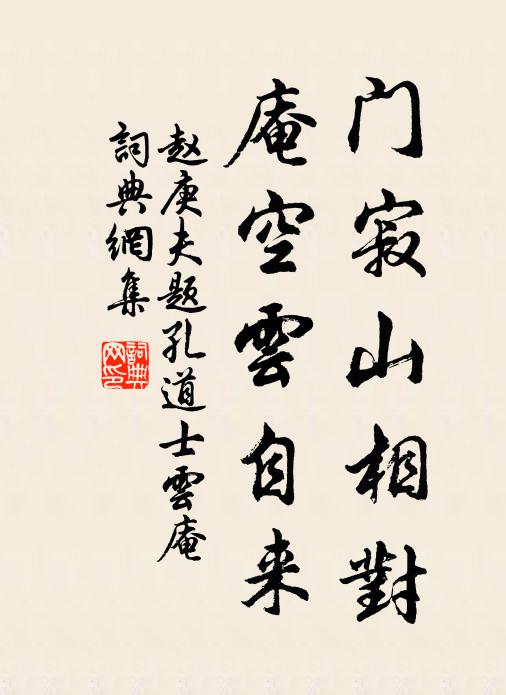 门寂山相對
庵空雲自来
赵庚夫题孔道士雲庵
詞典網集
詞典
网印